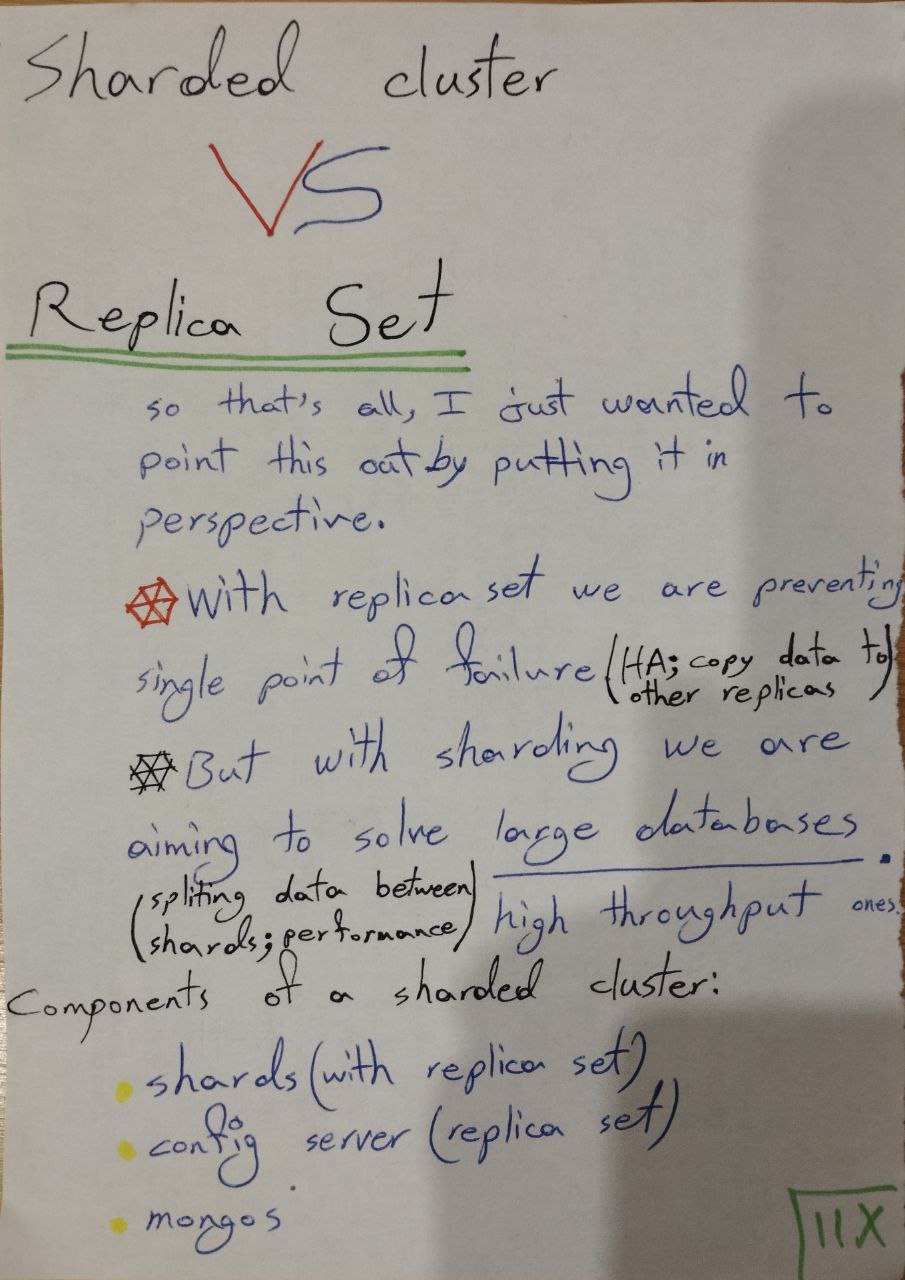 Sharded cluster
VS
Replica Set
so that's all, I just wanted to
point this out by putting it in
perspective.
With replica set we are preventing
single point of failure (HA; copy data to
other replicas)
But with sharding we are
aiming to solve large databases.
(spliting data between
shards; performance)
high throughput ones.
Components of a sharded cluster:
shards (with replica set)
config server (replica set)
mongos
11X